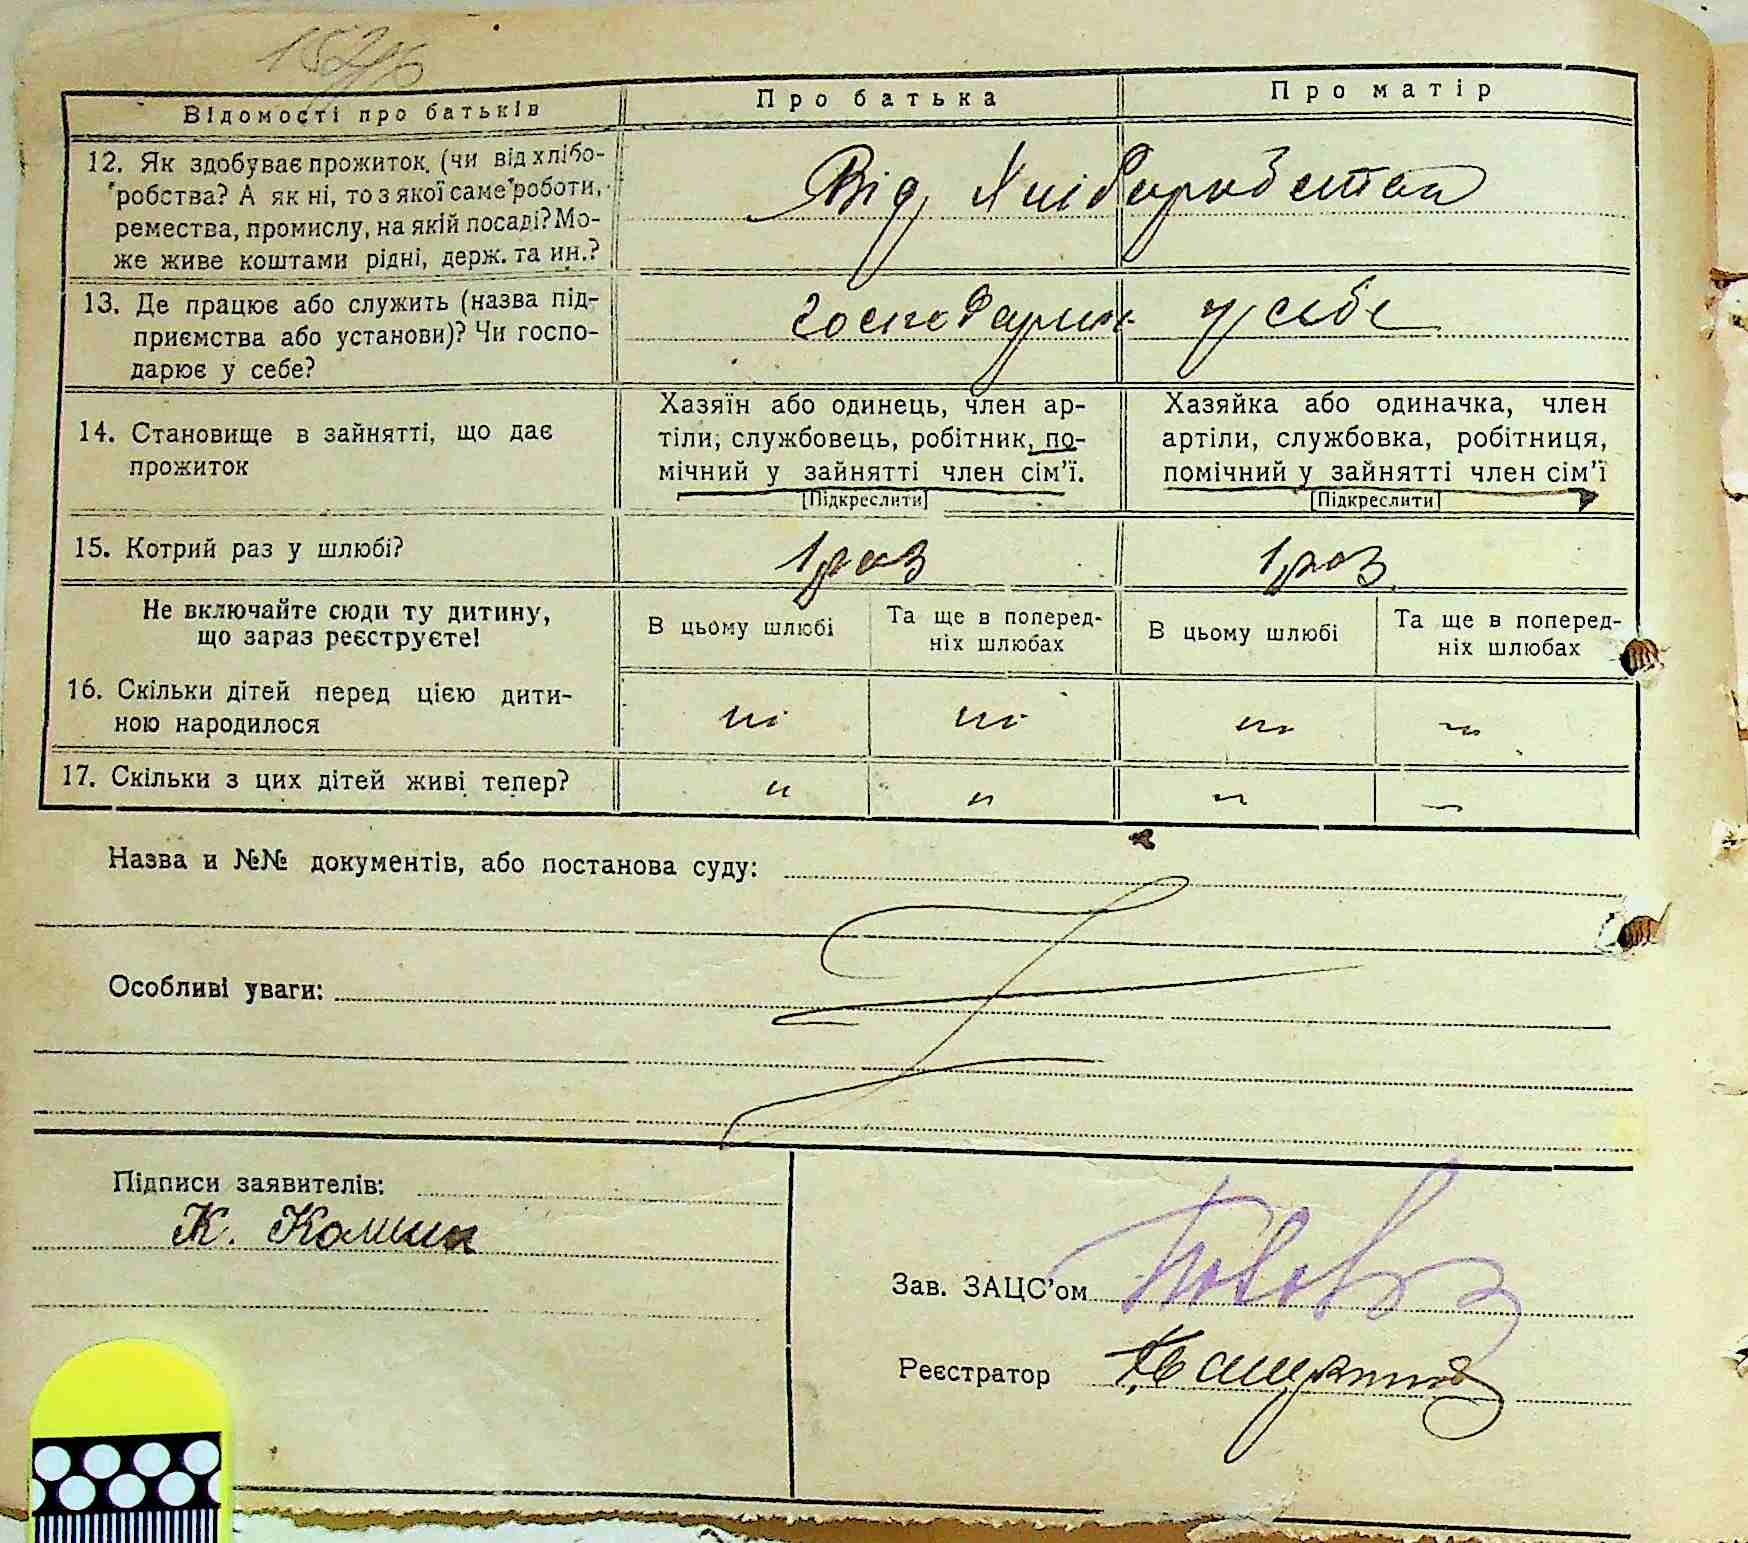 Відомості про батьків
Про батька
Про матір
12. Як здобуває прожиток, (чи від хлібо-
робства? А як ні, то з якої саме роботи,
ремества, промислу, на якій посаді? Мо-
же живе коштами рідні, держ. та ин.?
Від Хліборобства
13. Де працює або служить (назва під-
приємства або установи)? Чи госпо-
дарює у себе?
господарює у себе
14. Становище в зайнятті, що дає
прожиток
Хазяїн або одинець, член ар-
тіли, службовець, робітник, по-
мічний у зайнятті член сім'ї.
[Підкреслити]
Хазяйка або одиначка, член
артіли, службовка, робітниця,
помічний у зайнятті член сім'ї
[Підкреслити]
15. Котрий раз у шлюбі?
1 раз
1 раз
Не включайте сюди ту дитину,
що зараз реєструєте!
В цьому шлюбі
Та ще в поперед-
ніх шлюбах
В цьому шлюбі
Та ще в поперед-
ніх шлюбах
16. Скільки дітей перед цією дити-
ною народилося
ні
ні
"
"
17. Скільки з цих дітей живі тепер?
"
"
"
"
Назва и №№ документів, або постанова суду:
Особливі уваги:
Підписи заявителів:
К.
Зав. ЗАЦС'ом
Реєстратор